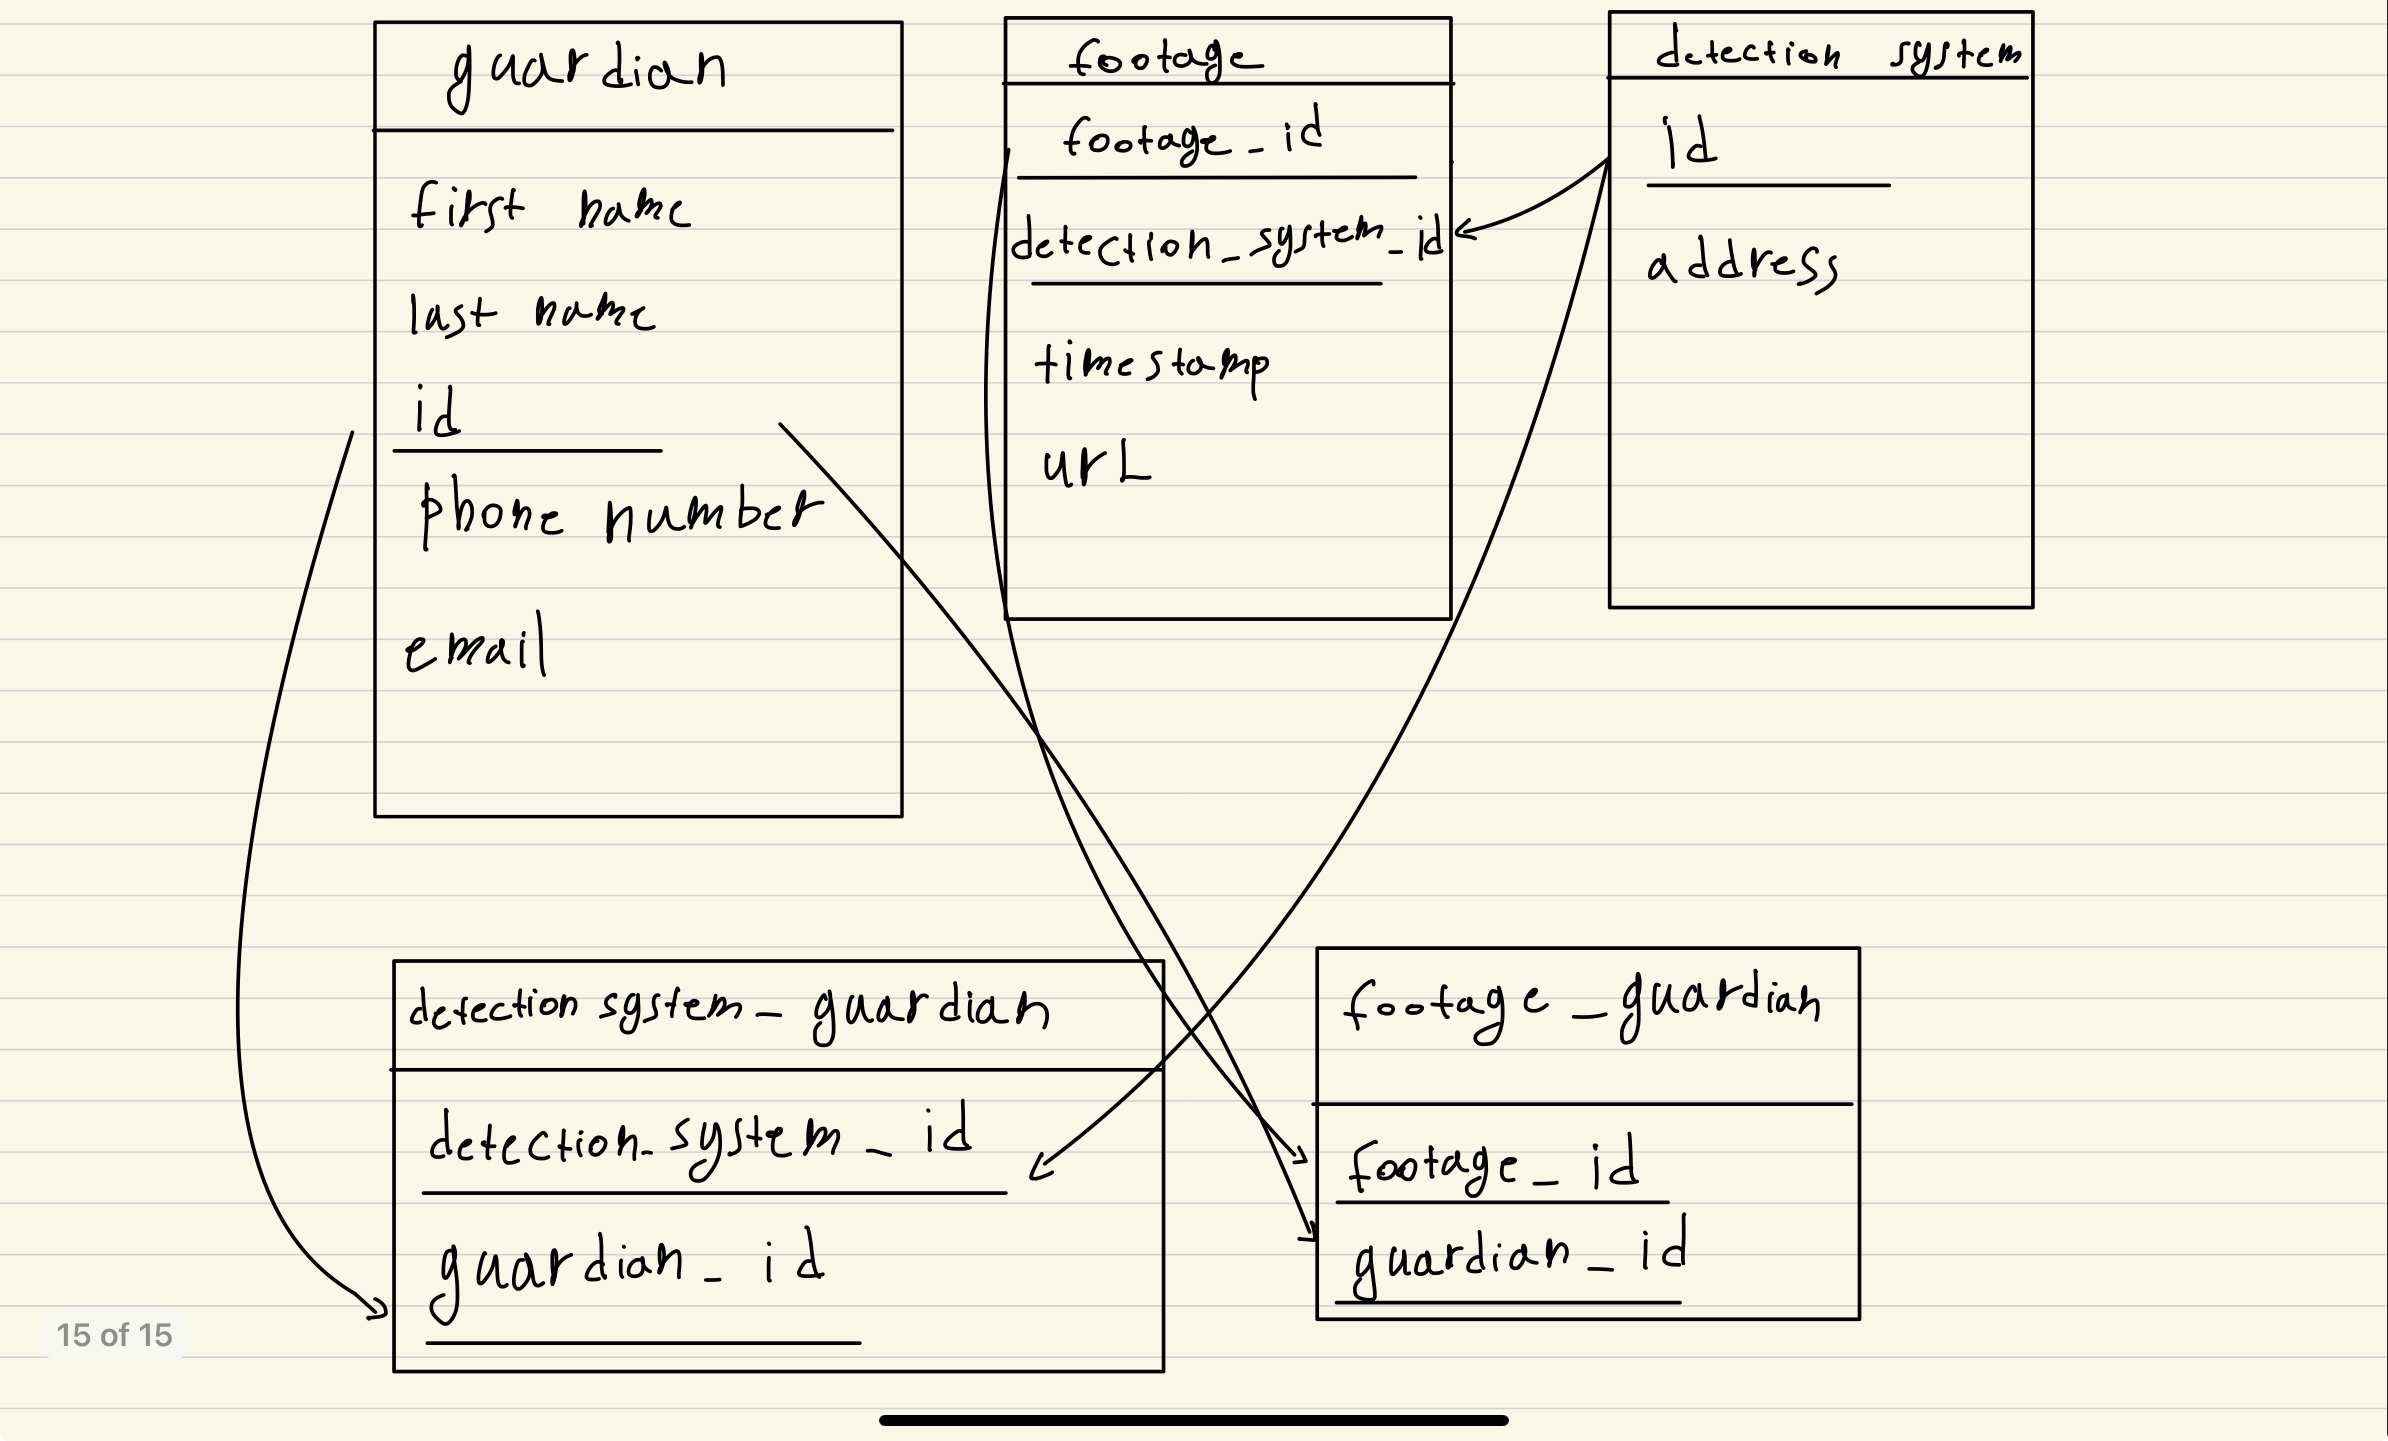 guardian
first name
last name
id
phone number
email
footage
footage_id
detection_system_id
timestamp
urL
detection system
id
address
detection system_guardian
detection_system_id
guardian_id
footage_guardian
footage_id
guardian_id
15 of 15